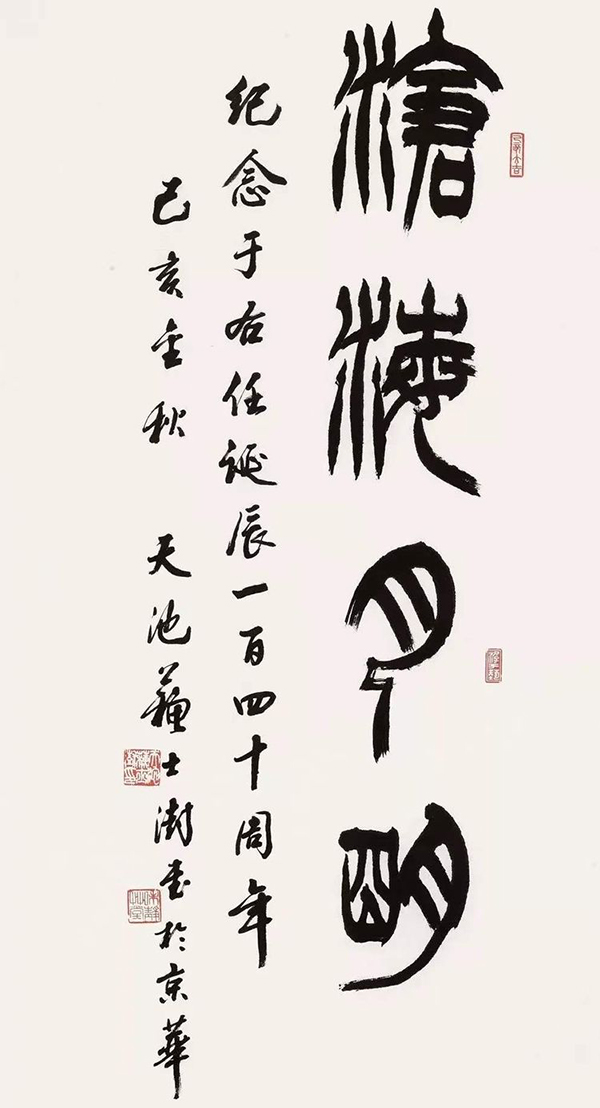 滄海月明
纪念于右任诞辰一百四十周年
己亥金秋 天池蘇士澍书於京華